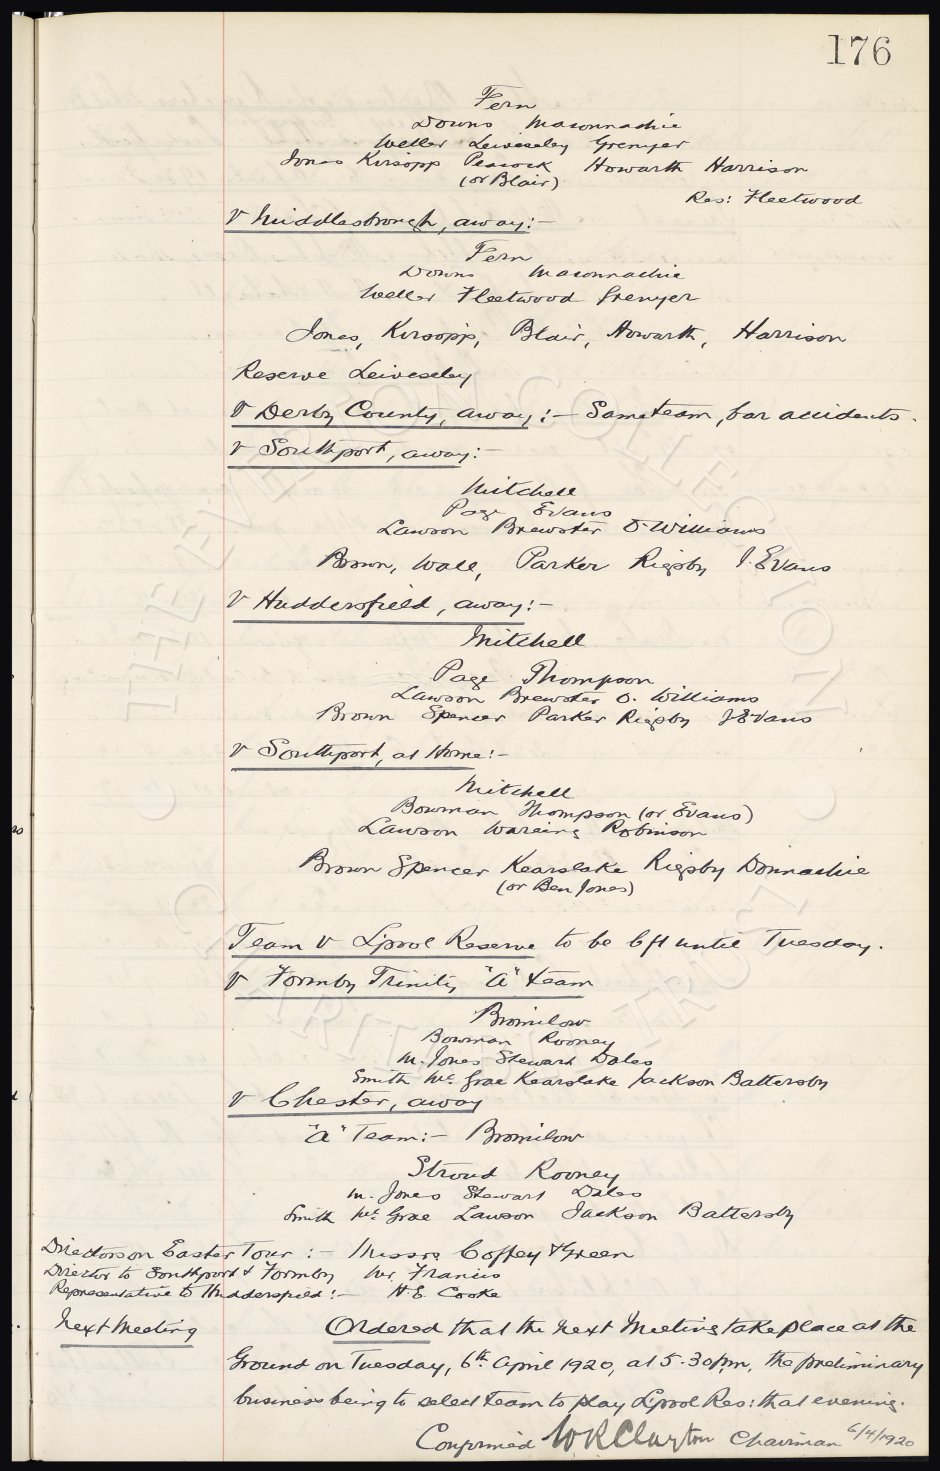 176
Fern
Downs Maconnachie
Weller Leivesley Grenyer
Jones Kirsopp Peacock Howarth Harrison
(or Blair)
Res: Fleetwood
v Middlesbrough, away:-
Fern
Downs Maconnachie
Weller Fleetwood Grenyer
Jones, Kirsopp, Blair, Howarth, Harrison
Reserve Leivesley
v Derby County, away:- Same team, bar accidents.
v Southport, away:-
Mitchell
Page Evans
Lawson Brewster O. Williams
Brown, Wall, Parker Rigsby J. Evans
v Huddersfield, away:-
Mitchell
Page Thompson
Lawson Brewster O. Williams
Brown Spencer Parker Rigsby J Evans
v Southport, at Home:-
Mitchell
Bowman Thompson (or Evans)
Lawson Wareing Robinson
Brown Spencer Kearslake Rigsby Donnachie
(or Ben Jones)
Team v L'pool Reserve to be left until Tuesday.
v Formby Trinity "A" team
Bromilow
Bowman Rooney
M. Jones Stewart Dales
Smith McGrae Kearslake Jackson Battersby
v Chester, away
"A" Team:- Bromilow
Stroud Rooney
M. Jones Stewart Dales
Smith McGrae Lawson Jackson Battersby
Directors on Easter Tour:- Messrs Coffey & Green
Director to Southport & Formby Mr. Francis
Representative to Huddersfield:- H E. Cooke
Next Meeting Ordered that the next Meeting take place at the
Ground on Tuesday, 6th April 1920, at 5.30pm, the preliminary
business being to select team to play Lpool Res: that evening.
Confirmed W R Clayton Chairman 6/4/1920
THE EVERTON COLLECTION CHARITABLE TRUST